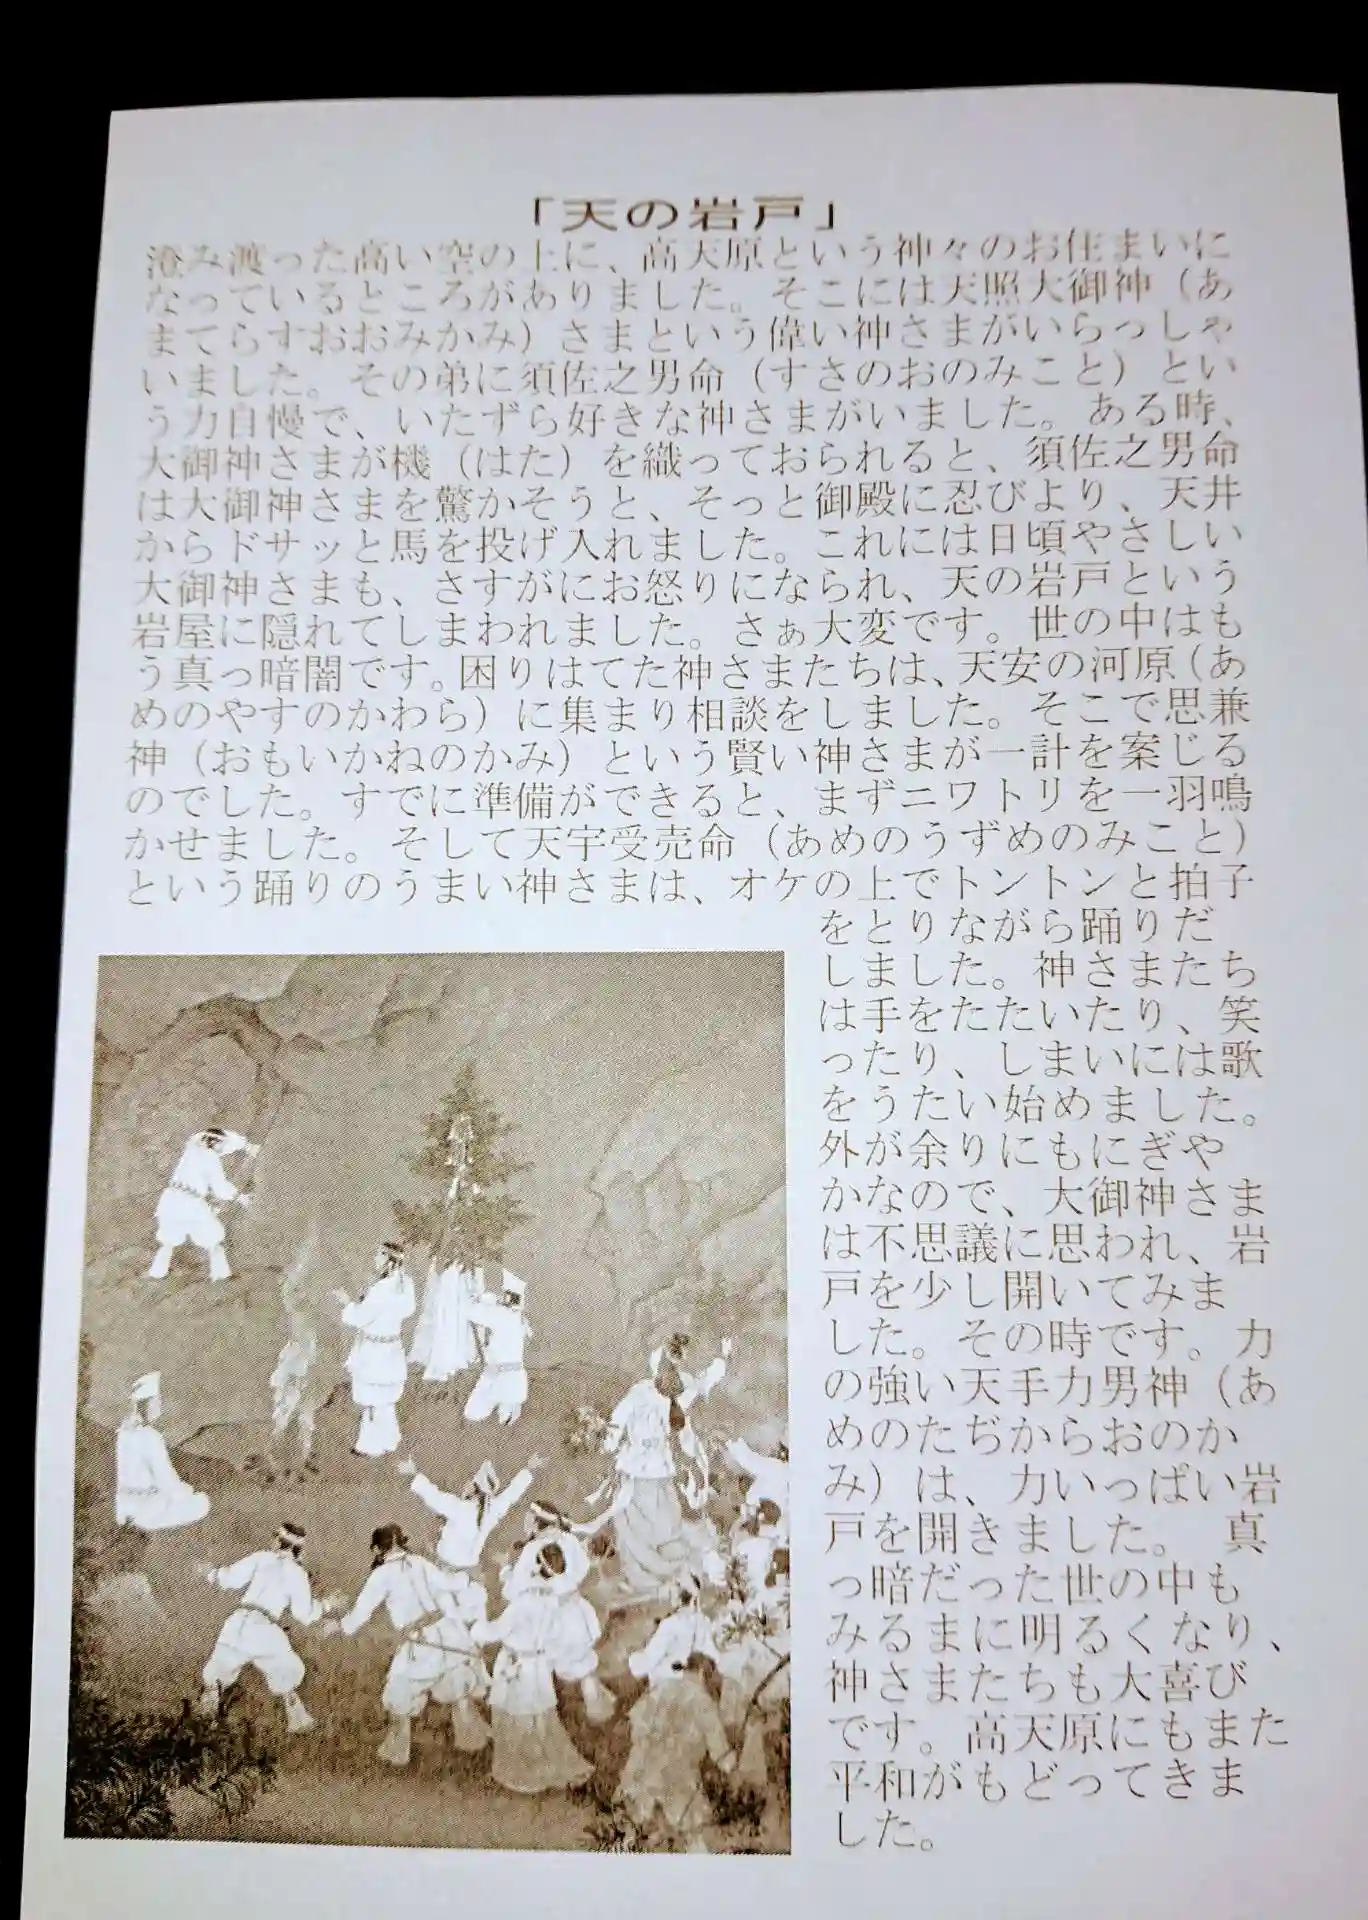 「天の岩戸」
澄み渡った高い空の上に、高天原という神々のお住まいに
なっているところがありました。そこには天照大御神（あ
まてらすおおみかみ）さまという偉い神さまがいらっしゃ
いました。その弟に須佐之男命（すさのおのみこと）とい
う力自慢で、いたずら好きな神さまがいました。ある時、
大御神さまが機（はた）を織っておられると、須佐之男命
は大御神さまを驚かそうと、そっと御殿に忍びより、天井
からドサッと馬を投げ入れました。これには日頃やさしい
大御神さまも、さすがにお怒りになられ、天の岩戸という
岩屋に隠れてしまわれました。さぁ大変です。世の中はも
う真っ暗闇です。困りはてた神さまたちは、天安の河原（あ
めのやすのかわら）に集まり相談をしました。そこで思兼
神（おもいかねのかみ）という賢い神さまが一計を案じる
のでした。すでに準備ができると、まずニワトリを一羽鳴
かせました。そして天宇受売命（あめのうずめのみこと）
という踊りのうまい神さまは、オケの上でトントンと拍子
をとりながら踊りだ
しました。神さまたち
は手をたたいたり、笑
ったり、しまいには歌
をうたい始めました。
外が余りにもにぎや
かなので、大御神さま
は不思議に思われ、岩
戸を少し開いてみま
した。その時です。力
の強い天手力男神（あ
めのたぢからおのか
み）は、力いっぱい岩
戸を開きました。 真
っ暗だった世の中も
みるまに明るくなり、
神さまたちも大喜び
です。高天原にもまた
平和がもどってきま
した。